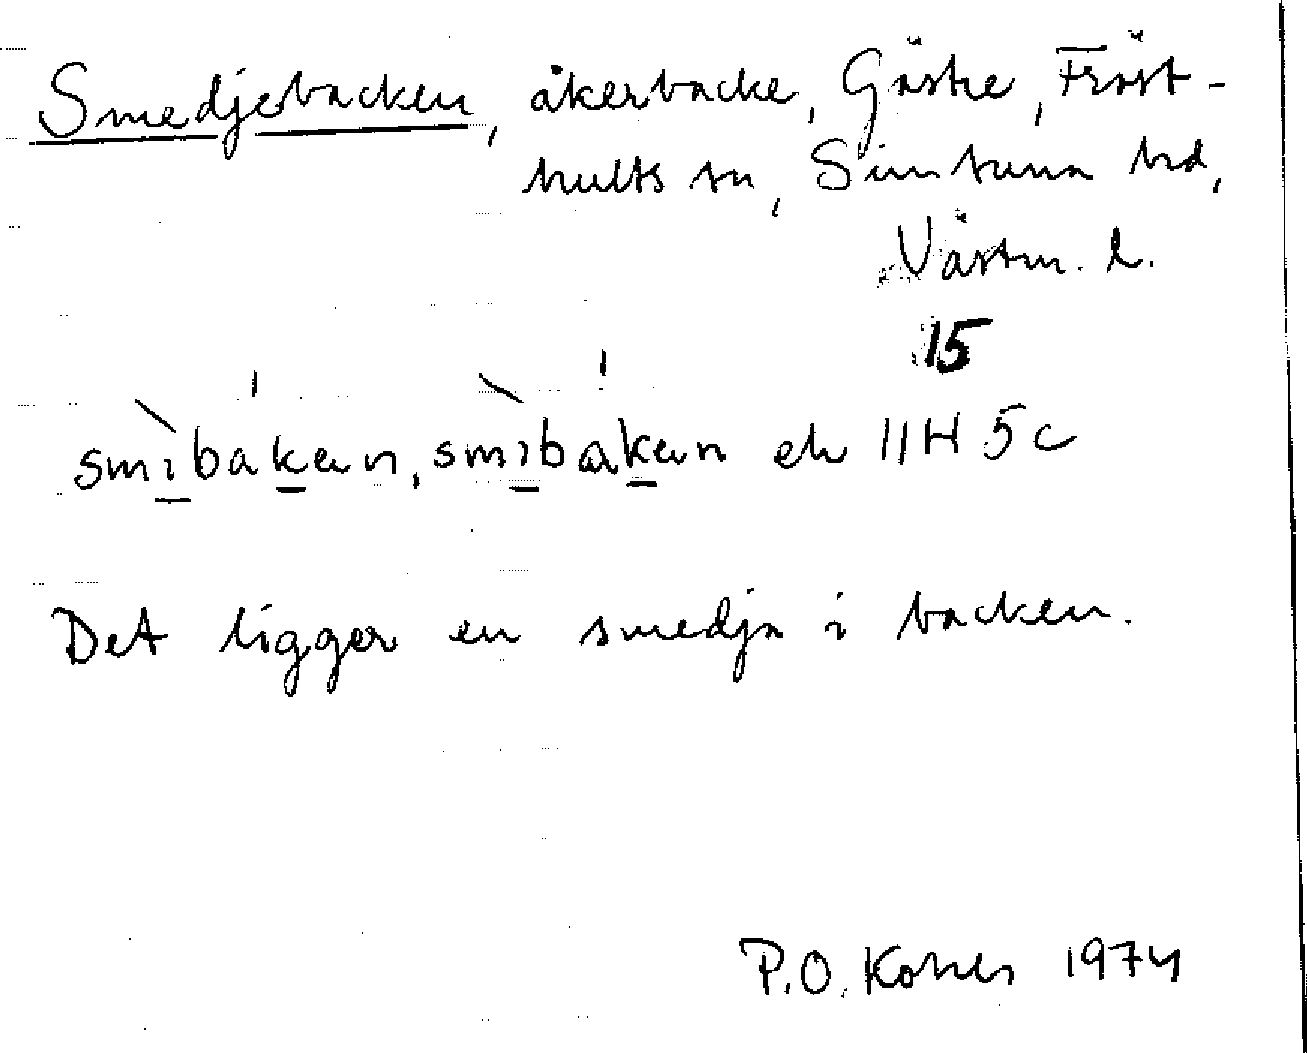 Smedjebacken, åkerbacke, Gästre, Fröst-
hults sn, Simtuna hd,
Västm. l.
15
smibaken, smibaken ek 11H 5c
Det ligger en smedja i backen.
P.O. 1974